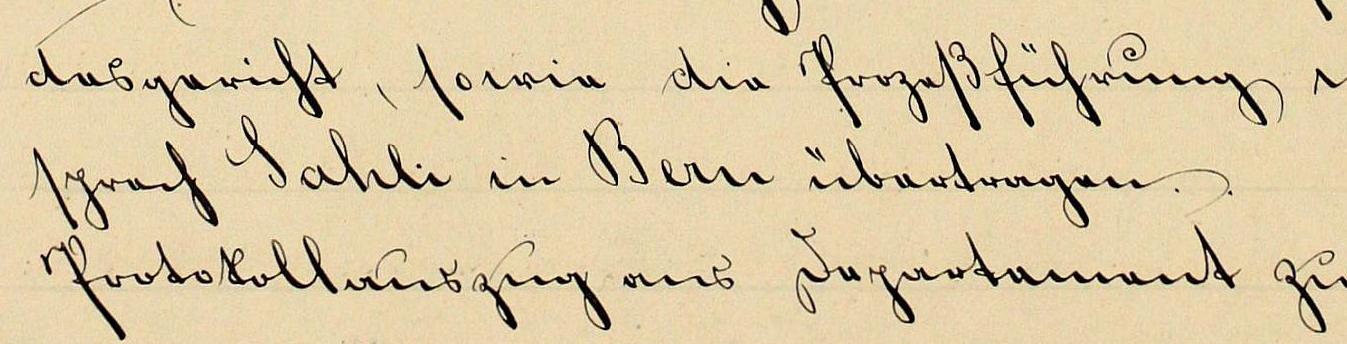 desgericht, sowie die Prozeßführung
sprech Sahli in Bern übertragen.
Protokollauszug ans Departement zu